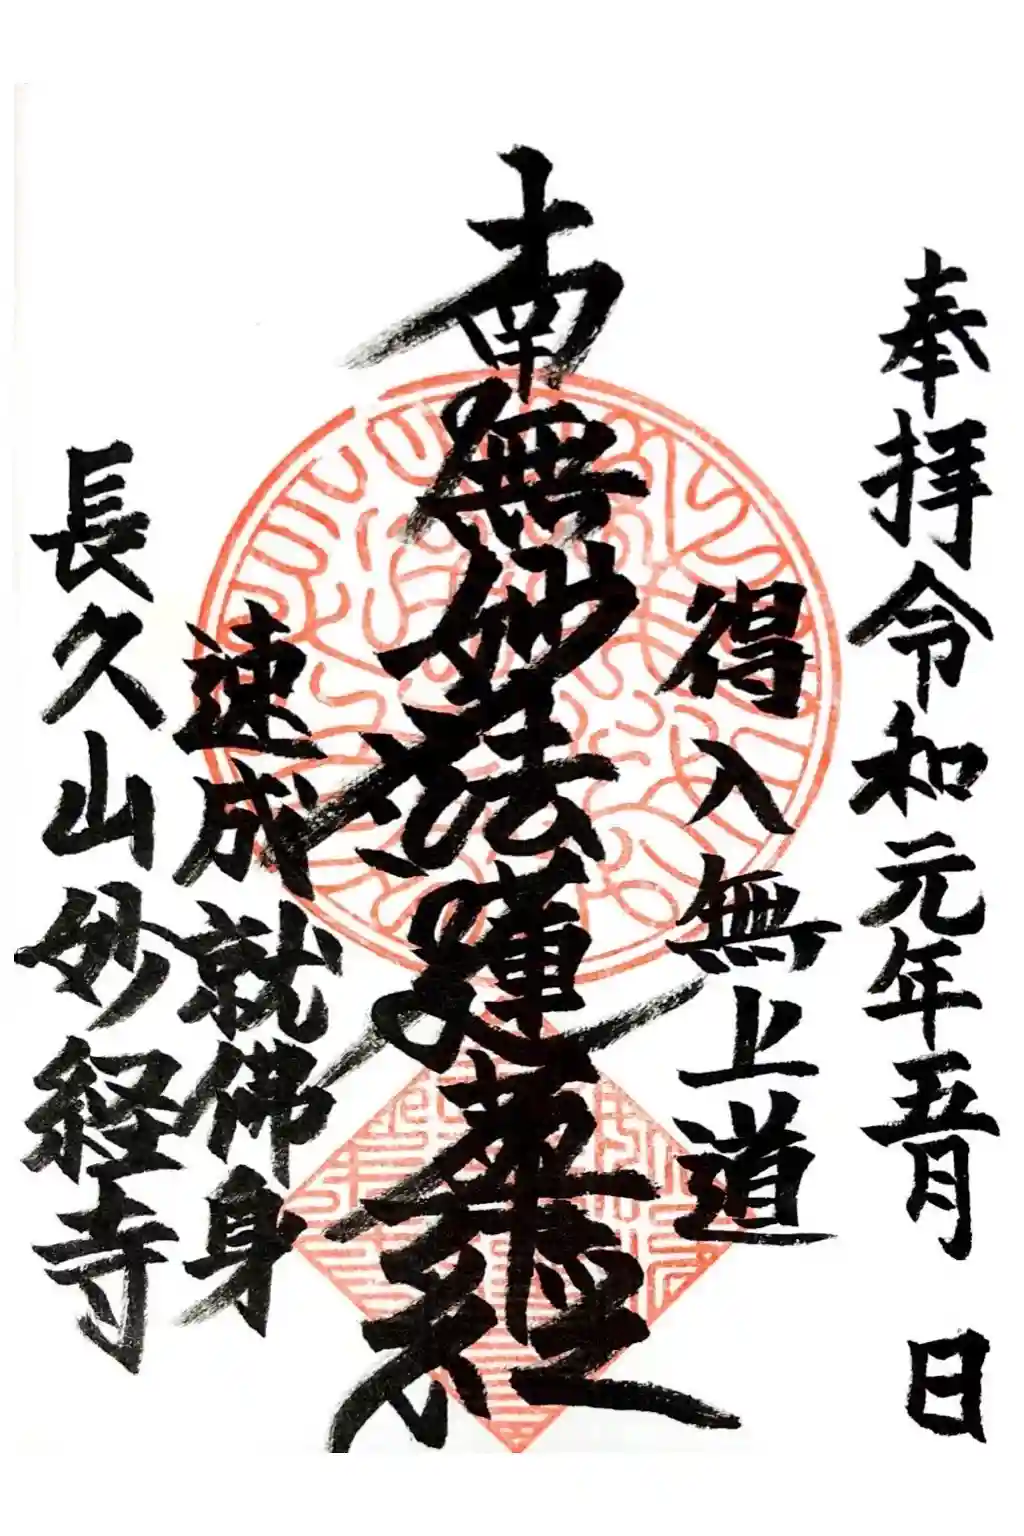 奉拝令和元年五月　日
得入無上道
南無妙法蓮華経
速成就佛身
長久山妙経寺